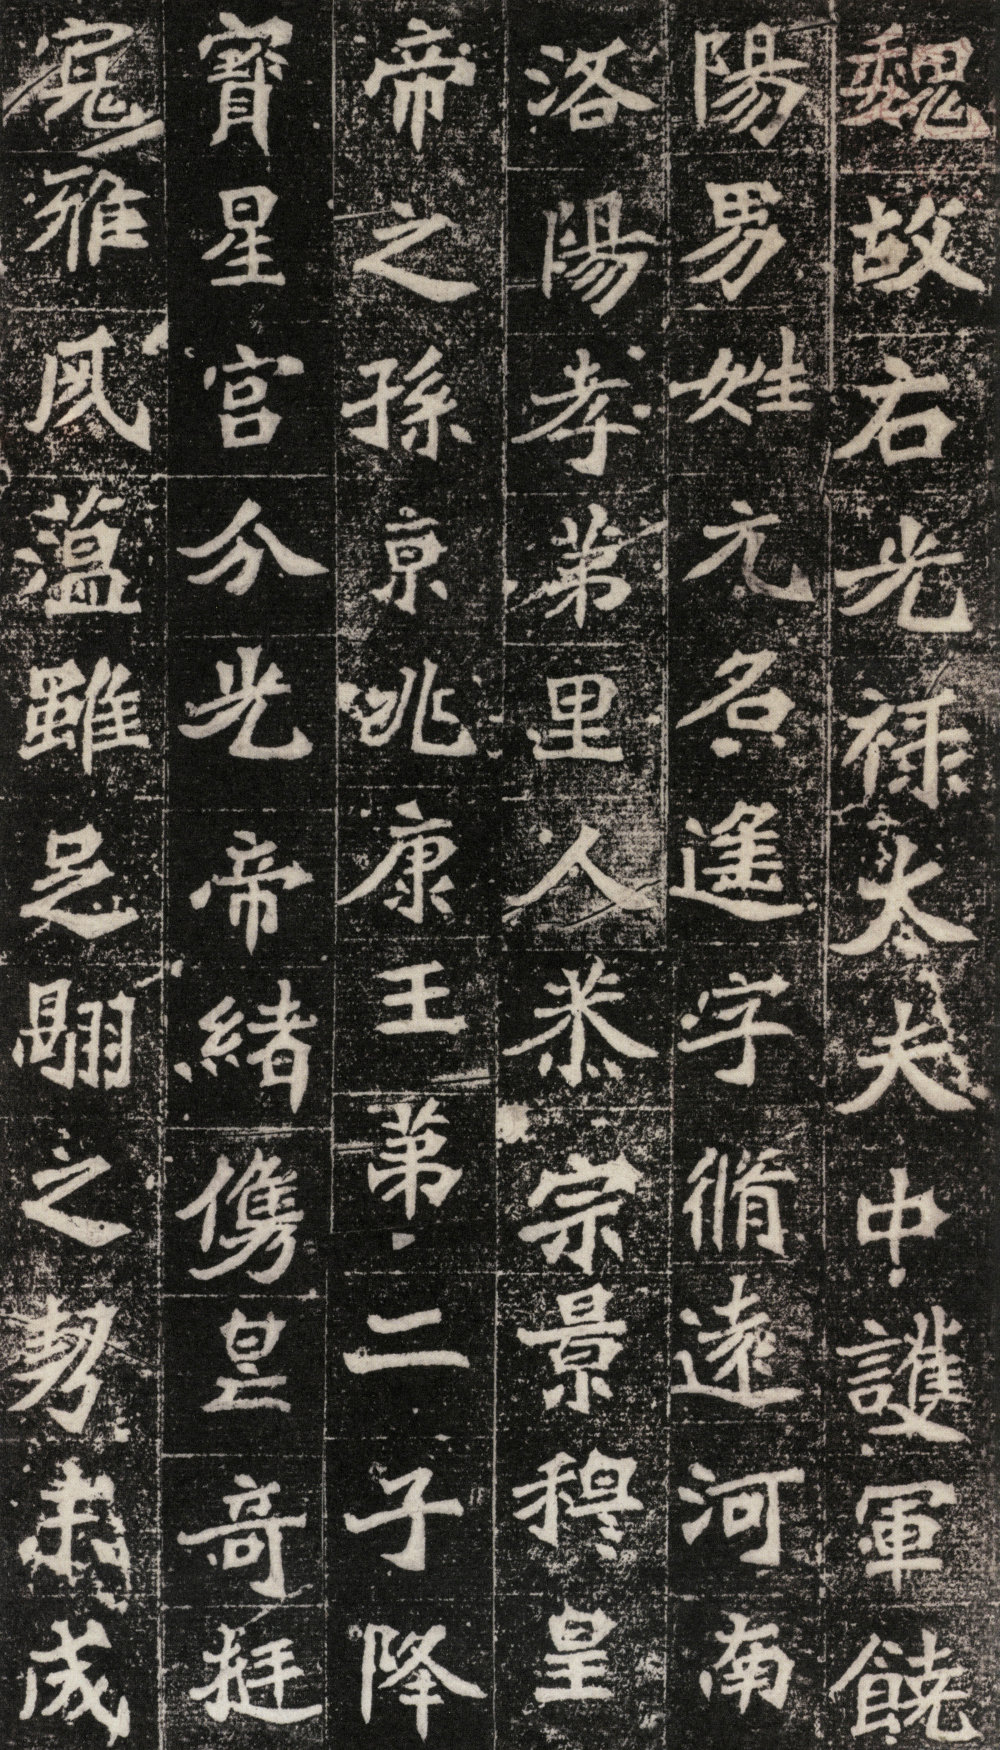 魏故右光禄太夫中護軍饒
陽男姓元名遥字脩遠河南
洛陽孝弟里人恭宗景穆皇
帝之孫京兆康王第二子降
寶星宫分光帝緒儁皇哥挺
寬雅夙藴雖足翾之勢未成